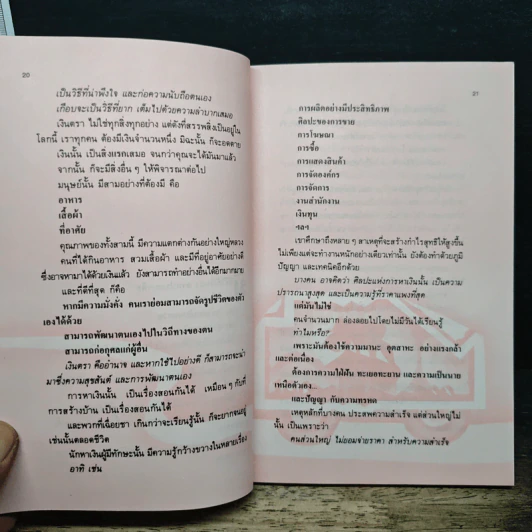 20
เป็นวิธีที่น่าพึงใจ และก่อความนับถือตนเอง
เกือบจะเป็นวิธีที่ยาก เต็มไปด้วยความลำบากเสมอ
เงินตรา ไม่ใช่ทุกสิ่งทุกอย่าง แต่ดังที่สรรพสิ่งเป็นอยู่ใน
โลกนี้ เราทุกคน ต้องมีเงินจำนวนหนึ่ง มิฉะนั้น ก็จะอดตาย
เงินนั้น เป็นสิ่งแรกเสมอ จนกว่าคุณจะได้มันมาแล้ว
จากนั้น ก็จะมีสิ่งอื่น ๆ ให้พิจารณาต่อไป
มนุษย์นั้น มีสามอย่างที่ต้องมี คือ
อาหาร
เสื้อผ้า
ที่อาศัย
คุณภาพของทั้งสามนี้ มีความแตกต่างกันอย่างใหญ่หลวง
คนที่ได้กินอาหาร สวมเสื้อผ้า และมีที่อยู่อาศัยอย่างดี
ซึ่งอาจหามาได้ด้วยเงินแล้ว ยังสามารถทำอย่างอื่นได้อีกมากมาย
และที่ดีที่สุด ก็คือ
หากมีความมั่งคั่ง คนเราย่อมสามารถจัดรูปชีวิตของตัว
เองได้ด้วย
สามารถพัฒนาตนเองไปในวิถีทางของตน
สามารถก่อกุศลแก่ผู้อื่น
เงินตรา คืออำนาจ และหากใช้ไปอย่างดี ก็สามารถจะนำ
มาซึ่งความสุขสันต์ และการพัฒนาตนเอง
การหาเงินนั้น เป็นเรื่องสอนกันได้ เหมือน ๆ กับที่
การสร้างบ้าน เป็นเรื่องสอนกันได้
และพวกที่เฉื่อยชา เกินกว่าจะเรียนรู้นั้น ก็จะยากจนอยู่
เช่นนั้นตลอดชีวิต
นักหาเงินผู้มีทักษะนั้น มีความรู้กว้างขวางในหลายเรื่อง
อาทิ เช่น
21
การผลิตอย่างมีประสิทธิภาพ
ศิลปะของการขาย
การโฆษณา
การซื้อ
การแสดงสินค้า
การจัดองค์กร
การจัดการ
งานสำนักงาน
เงินทุน
ฯลฯ
เขาศึกษาถึงหลาย ๆ สาเหตุที่จะสร้างกำไรสุทธิให้สูงขึ้น
ไม่เพียงแต่จะทำงานหนักอย่างเดียวเท่านั้น ยังต้องทำด้วยภูมิ
ปัญญา และเทคนิคอีกด้วย
บางคน อาจคิดว่า ศิลปะแห่งการหาเงินนั้น เป็นความ
ปรารถนาสูงสุด และเป็นความรู้ที่ราคาแพงที่สุด
แต่มันไม่ใช่
คนจำนวนมาก ล่องลอยไปโดยไม่มีวันได้เรียนรู้
ทำไมหรือ?
เพราะมันต้องใช้ความมานะ อุตสาหะ อย่างแรงกล้า
และต่อเนื่อง
ต้องการความใฝ่ฝัน ทะเยอทะยาน และความเป็นนาย
เหนือตัวเอง...
และปัญญา กับความทรหด
เหตุหลักที่บางคน ประสพความสำเร็จ แต่ส่วนใหญ่ไม่
นั้น เป็นเพราะว่า
คนส่วนใหญ่ ไม่ยอมจ่ายราคา สำหรับความสำเร็จ